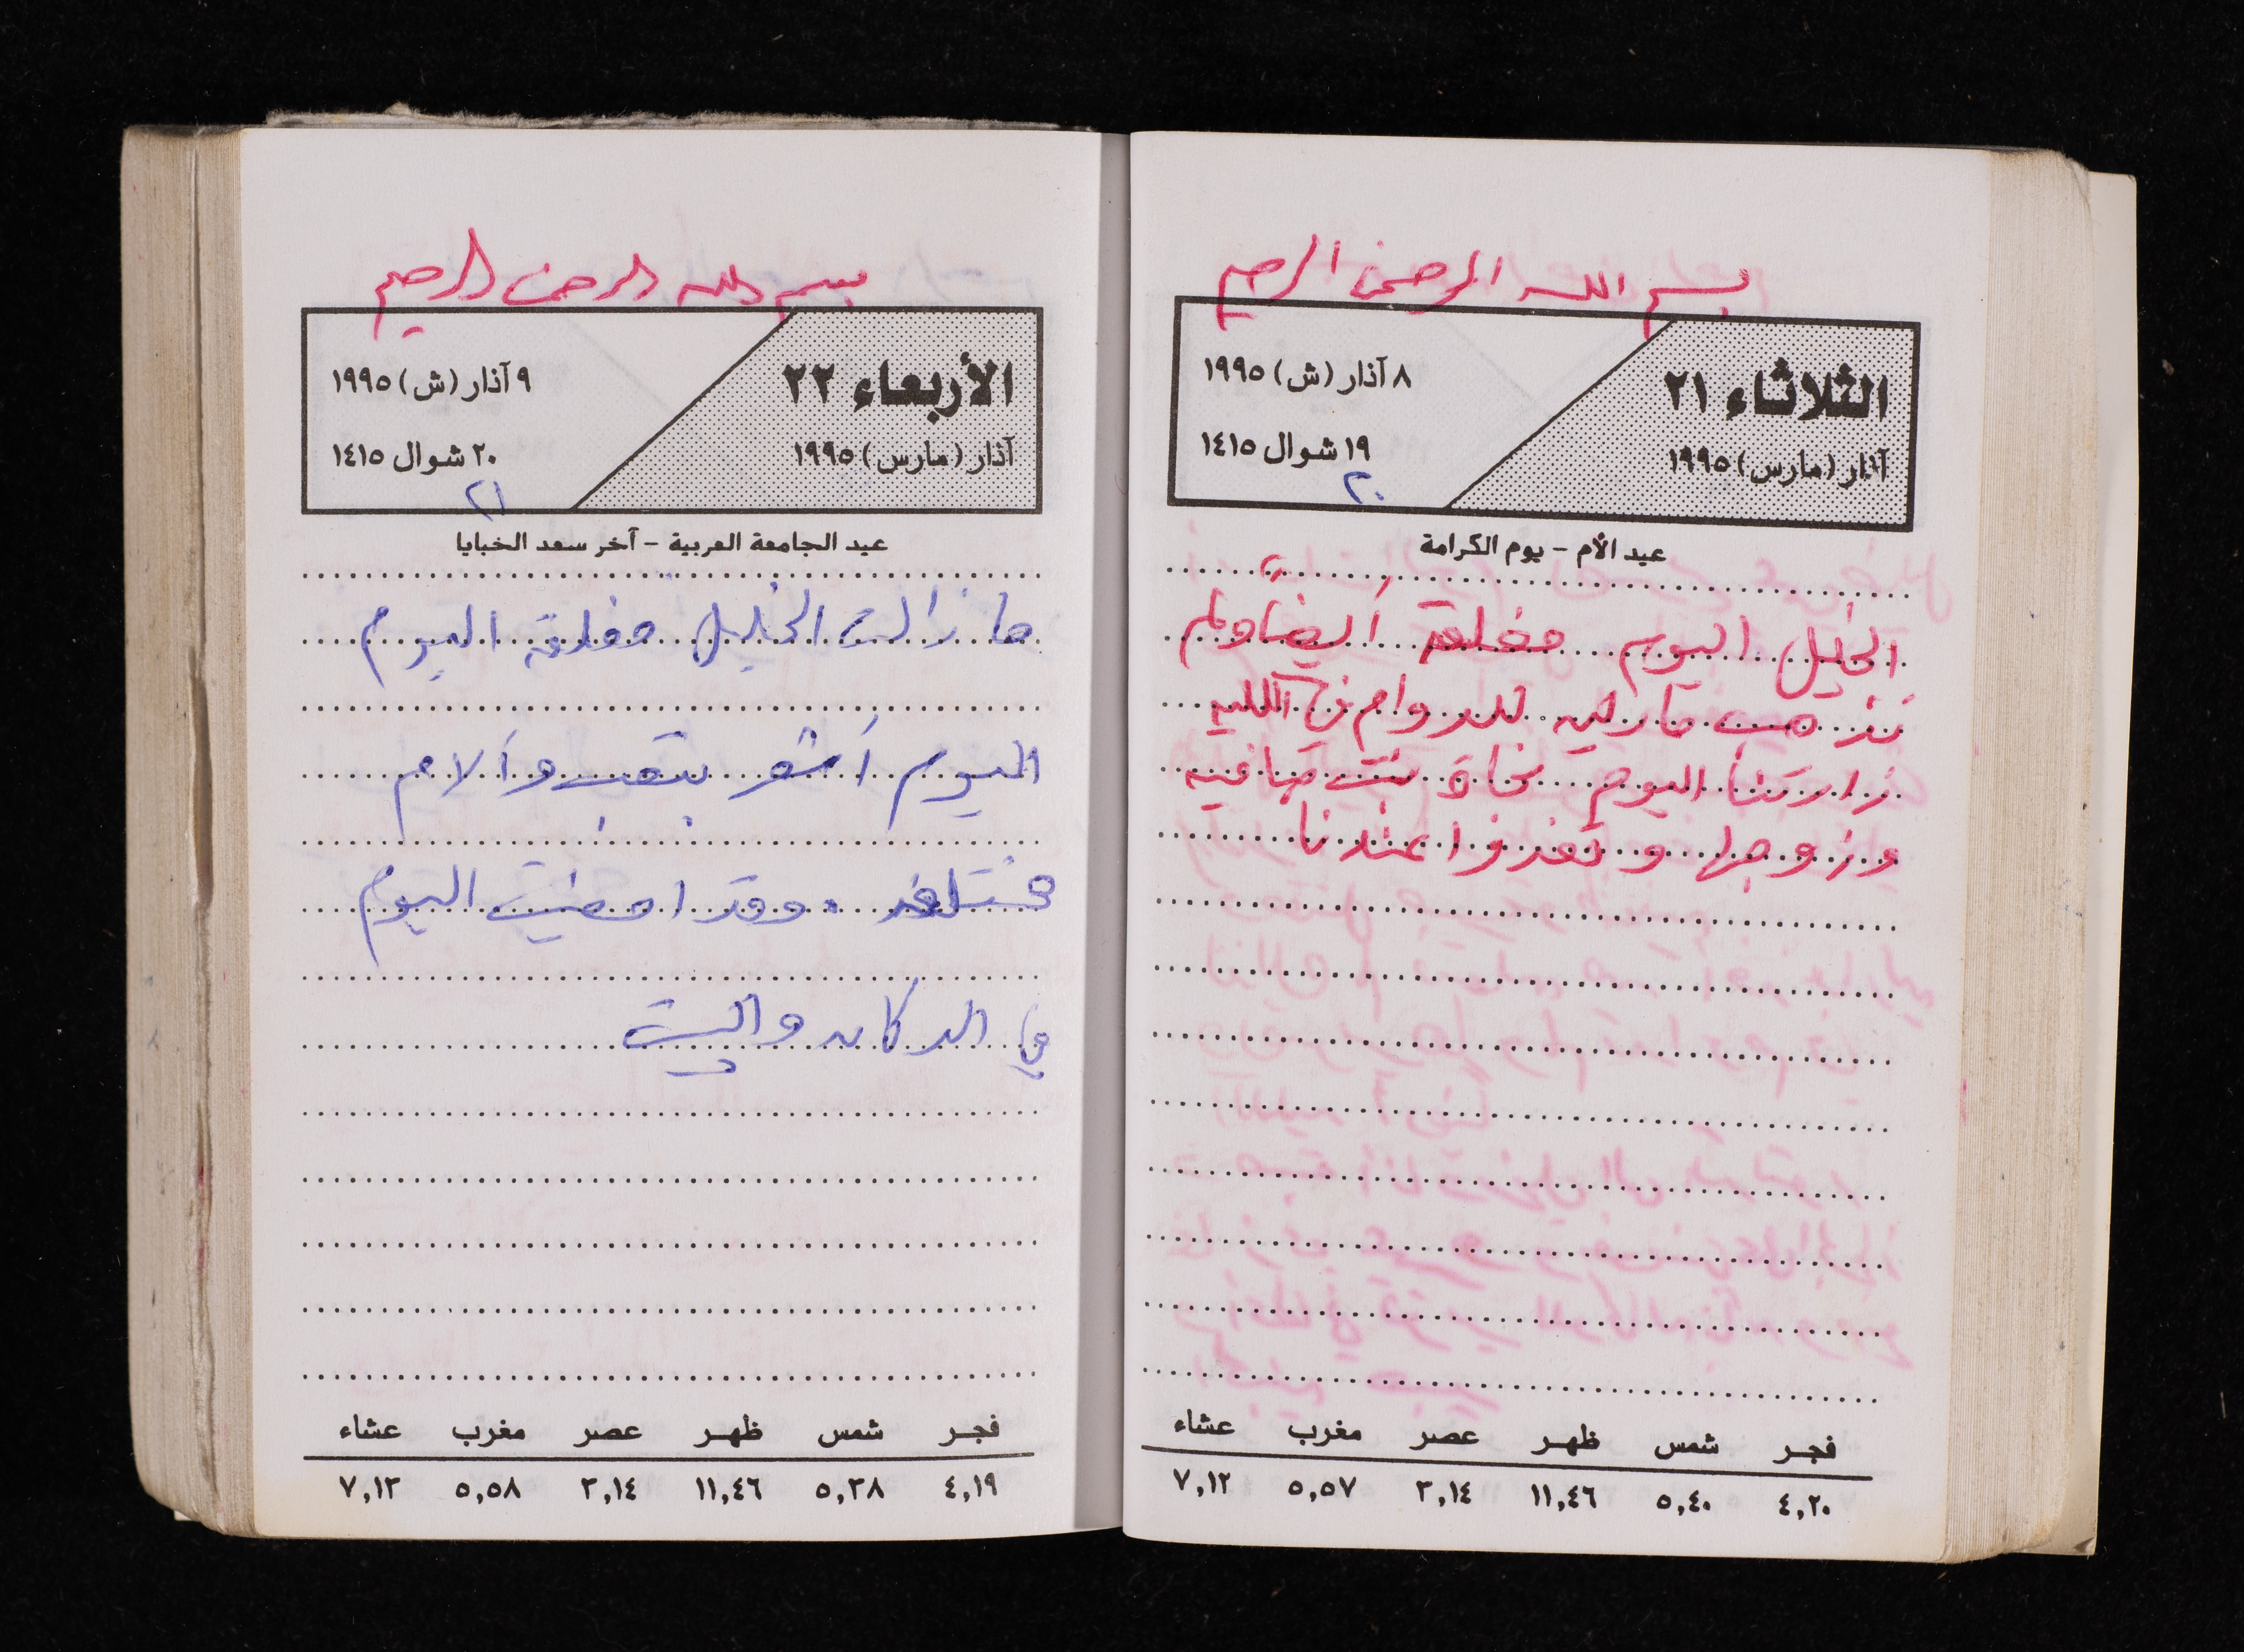 بسم الله الرحمن الرحيم
الثلاثاء ٢١
آذار (مارس) ١٩٩٥
٨ آذار (ش) ١٩٩٥
١٩ شوال ١٤١٥
٢٠
عيد الأم - يوم الكرامة
الخليل اليوم مغلقة أيضاً ولم
تذهب للدوام في الكلية
زارتنا اليوم نجاة بنت صافيه
وزوجها وتغدوا عندنا
فجر شمس ظهر عصر مغرب عشاء
٤,٢٠ ٥,٤٠ ١١,٤٦ ٣,١٤ ٥,٥٧ ٧,١٢
بسم الله الرحمن الرحيم
الأربعاء ٢٢
آذار (مارس) ١٩٩٥
٩ آذار (ش) ١٩٩٥
٢٠ شوال ١٤١٥
٢١
عيد الجامعة العربية - آخر سعد الخبايا
ما زالت الخليل مغلقة اليوم
اليوم أشعر بتعب وآلام
مختلفة . وقد امضيت اليوم
في الدكان والبيت
فجر شمس ظهر عصر مغرب عشاء
٤,١٩ ٥,٣٨ ١١,٤٦ ٣,١٤ ٥,٥٨ ٧,١٣